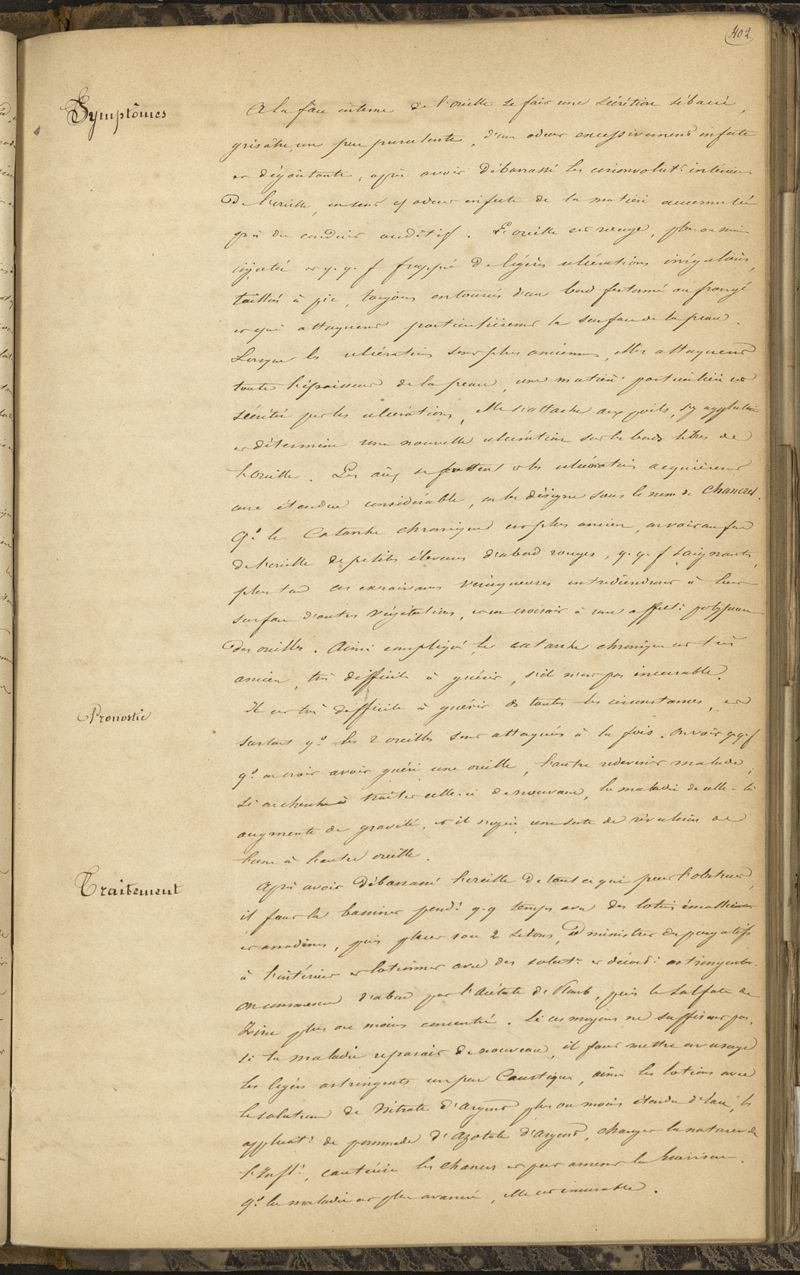 402
Symptômes
A la face interne de l'oreille se fait une sécrétion sébacée,
grisâtre, un peu purulente, d'une odeur excessivement infecte
et dégoûtante, après avoir débarrassé les circonvolut.s internes
De l'oreille, on sent cette odeur infecte de la matière accumulée
près du conduit auditif. L'oreille est rouge, plus ou moins
injectée et q. q. f. frappée de légères ulcérations irrégulières,
taillées à pic, toujours entourées d'un bord festonné ou frangé
et qui attaquent particulièrement la surface de la peau.
Lorsque les ulcérations sont plus anciennes, elles attaquent
toute l'épaisseur de la peau, une matière particulière est
sécrétée par les ulcérations, elle s'attache aux poils, s'y agglutine
et détermine une nouvelle ulcération sur les bords libres de
l'oreille. Les se frottent et les ulcérations acquièrent
une étendue considérable, on les désigne sous le nom de Chancres.
Q.d le Catarrhe chronique est plus ancien, on voit au fond
de l'oreille de petits élevures d'abord rouges, q. q. f. saignantes,
plus tard ces excroissances verruqueuses
surface d'autres végétations, et on croirait à une affect.n polypeuse
des oreilles. Ainsi compliqué le catarrhe chronique est très
ancien, très difficile à guérir, s'il n'est pas incurable.
Pronostic
Il est très difficile à guérir ds toutes les circonstances, et
surtout q.d les 2 oreilles sont attaquées à la fois. On voit q. q. f.
q.d on croit avoir guéri une oreille, l'autre redevenir malade,
si on cherche à traiter celle-ci de nouveau, la maladie de celle-là
augmente de gravité, et il s'opère une sorte de révulsion de
l'une à l'autre oreille.
Traitement
Après avoir débarrassé l'oreille de tout ce qui peut l'obstruer,
il faut la bassiner pend.t q. q. temps avec des lotions émollientes
et anodines, puis placer 1 ou 2 sétons, administrer des purgatifs
à l'intérieur et lotionner avec des solut.ns et décoct.ns astringentes.
On commence d'abord par l'Acétate de Plomb, puis le Sulfate de
Zinc plus ou moins concentré. Si ces moyens ne suffisent pas,
si la maladie reparaît de nouveau, il faut mettre en usage
les légers astringents un peu Caustiques, ainsi les lotions avec
le solutum de Nitrate d'Argent plus ou moins étendu d'eau, les
applicat.ns de pommade d'Azotate d'Argent, changer la nature de
l'Infl.n, cautériser les chancres et peut amener la guérison.
Q.d la maladie est plus avancée, elle est incurable.